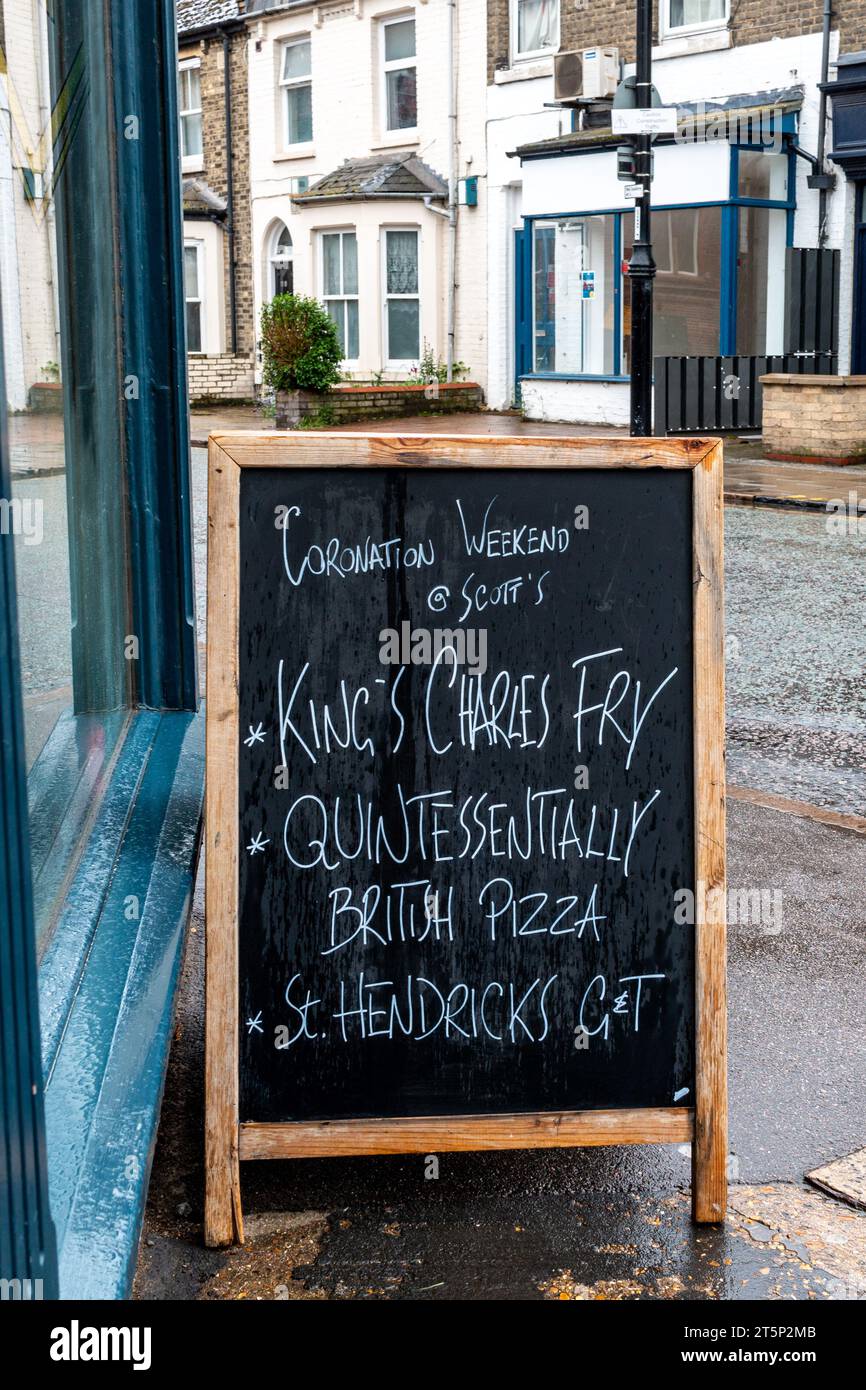 Coronation Weekend
@ Scott's
* King's Charles Fry
* Quintessentially
British Pizza
* St. Hendricks G&T
alamy
Image ID: 2T5P2MB
www.alamy.com